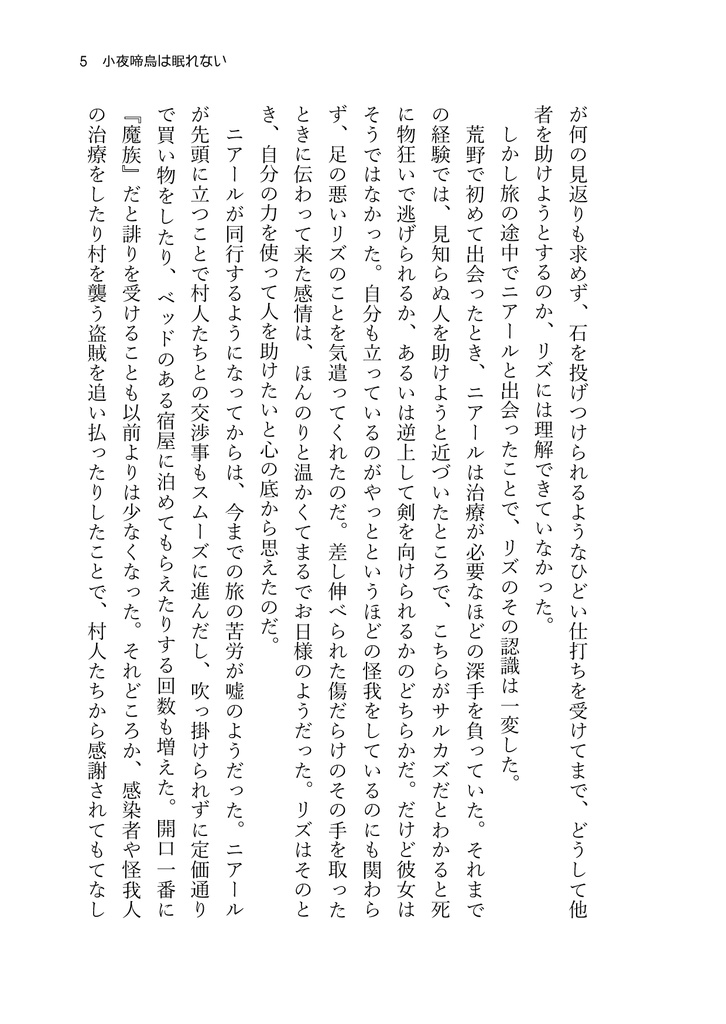 5 小夜啼鳥は眠れない
が何の見返りも求めず、石を投げつけられるようなひどい仕打ちを受けてまで、どうして他
者を助けようとするのか、リズには理解できていなかった。
しかし旅の途中でニアールと出会ったことで、リズのその認識は一変した。
荒野で初めて出会ったとき、ニアールは治療が必要なほどの深手を負っていた。それまで
の経験では、見知らぬ人を助けようと近づいたところで、こちらがサルカズだとわかると死
に物狂いで逃げられるか、あるいは逆上して剣を向けられるかのどちらかだ。だけど彼女は
そうではなかった。自分も立っているのがやっとというほどの怪我をしているのにも関わら
ず、足の悪いリズのことを気遣ってくれたのだ。差し伸べられた傷だらけのその手を取った
ときに伝わって来た感情は、ほんのりと温かくてまるでお日様のようだった。リズはそのと
き、自分の力を使って人を助けたいと心の底から思えたのだ。
ニアールが同行するようになってからは、今までの旅の苦労が嘘のようだった。ニアール
が先頭に立つことで村人たちとの交渉事もスムーズに進んだし、吹っ掛けられずに定価通り
で買い物をしたり、ベッドのある宿屋に泊めてもらえたりする回数も増えた。開口一番に
『魔族』だと誹りを受けることも以前よりは少なくなった。それどころか、感染者や怪我人
の治療をしたり村を襲う盗賊を追い払ったりしたことで、村人たちから感謝されてもてなし